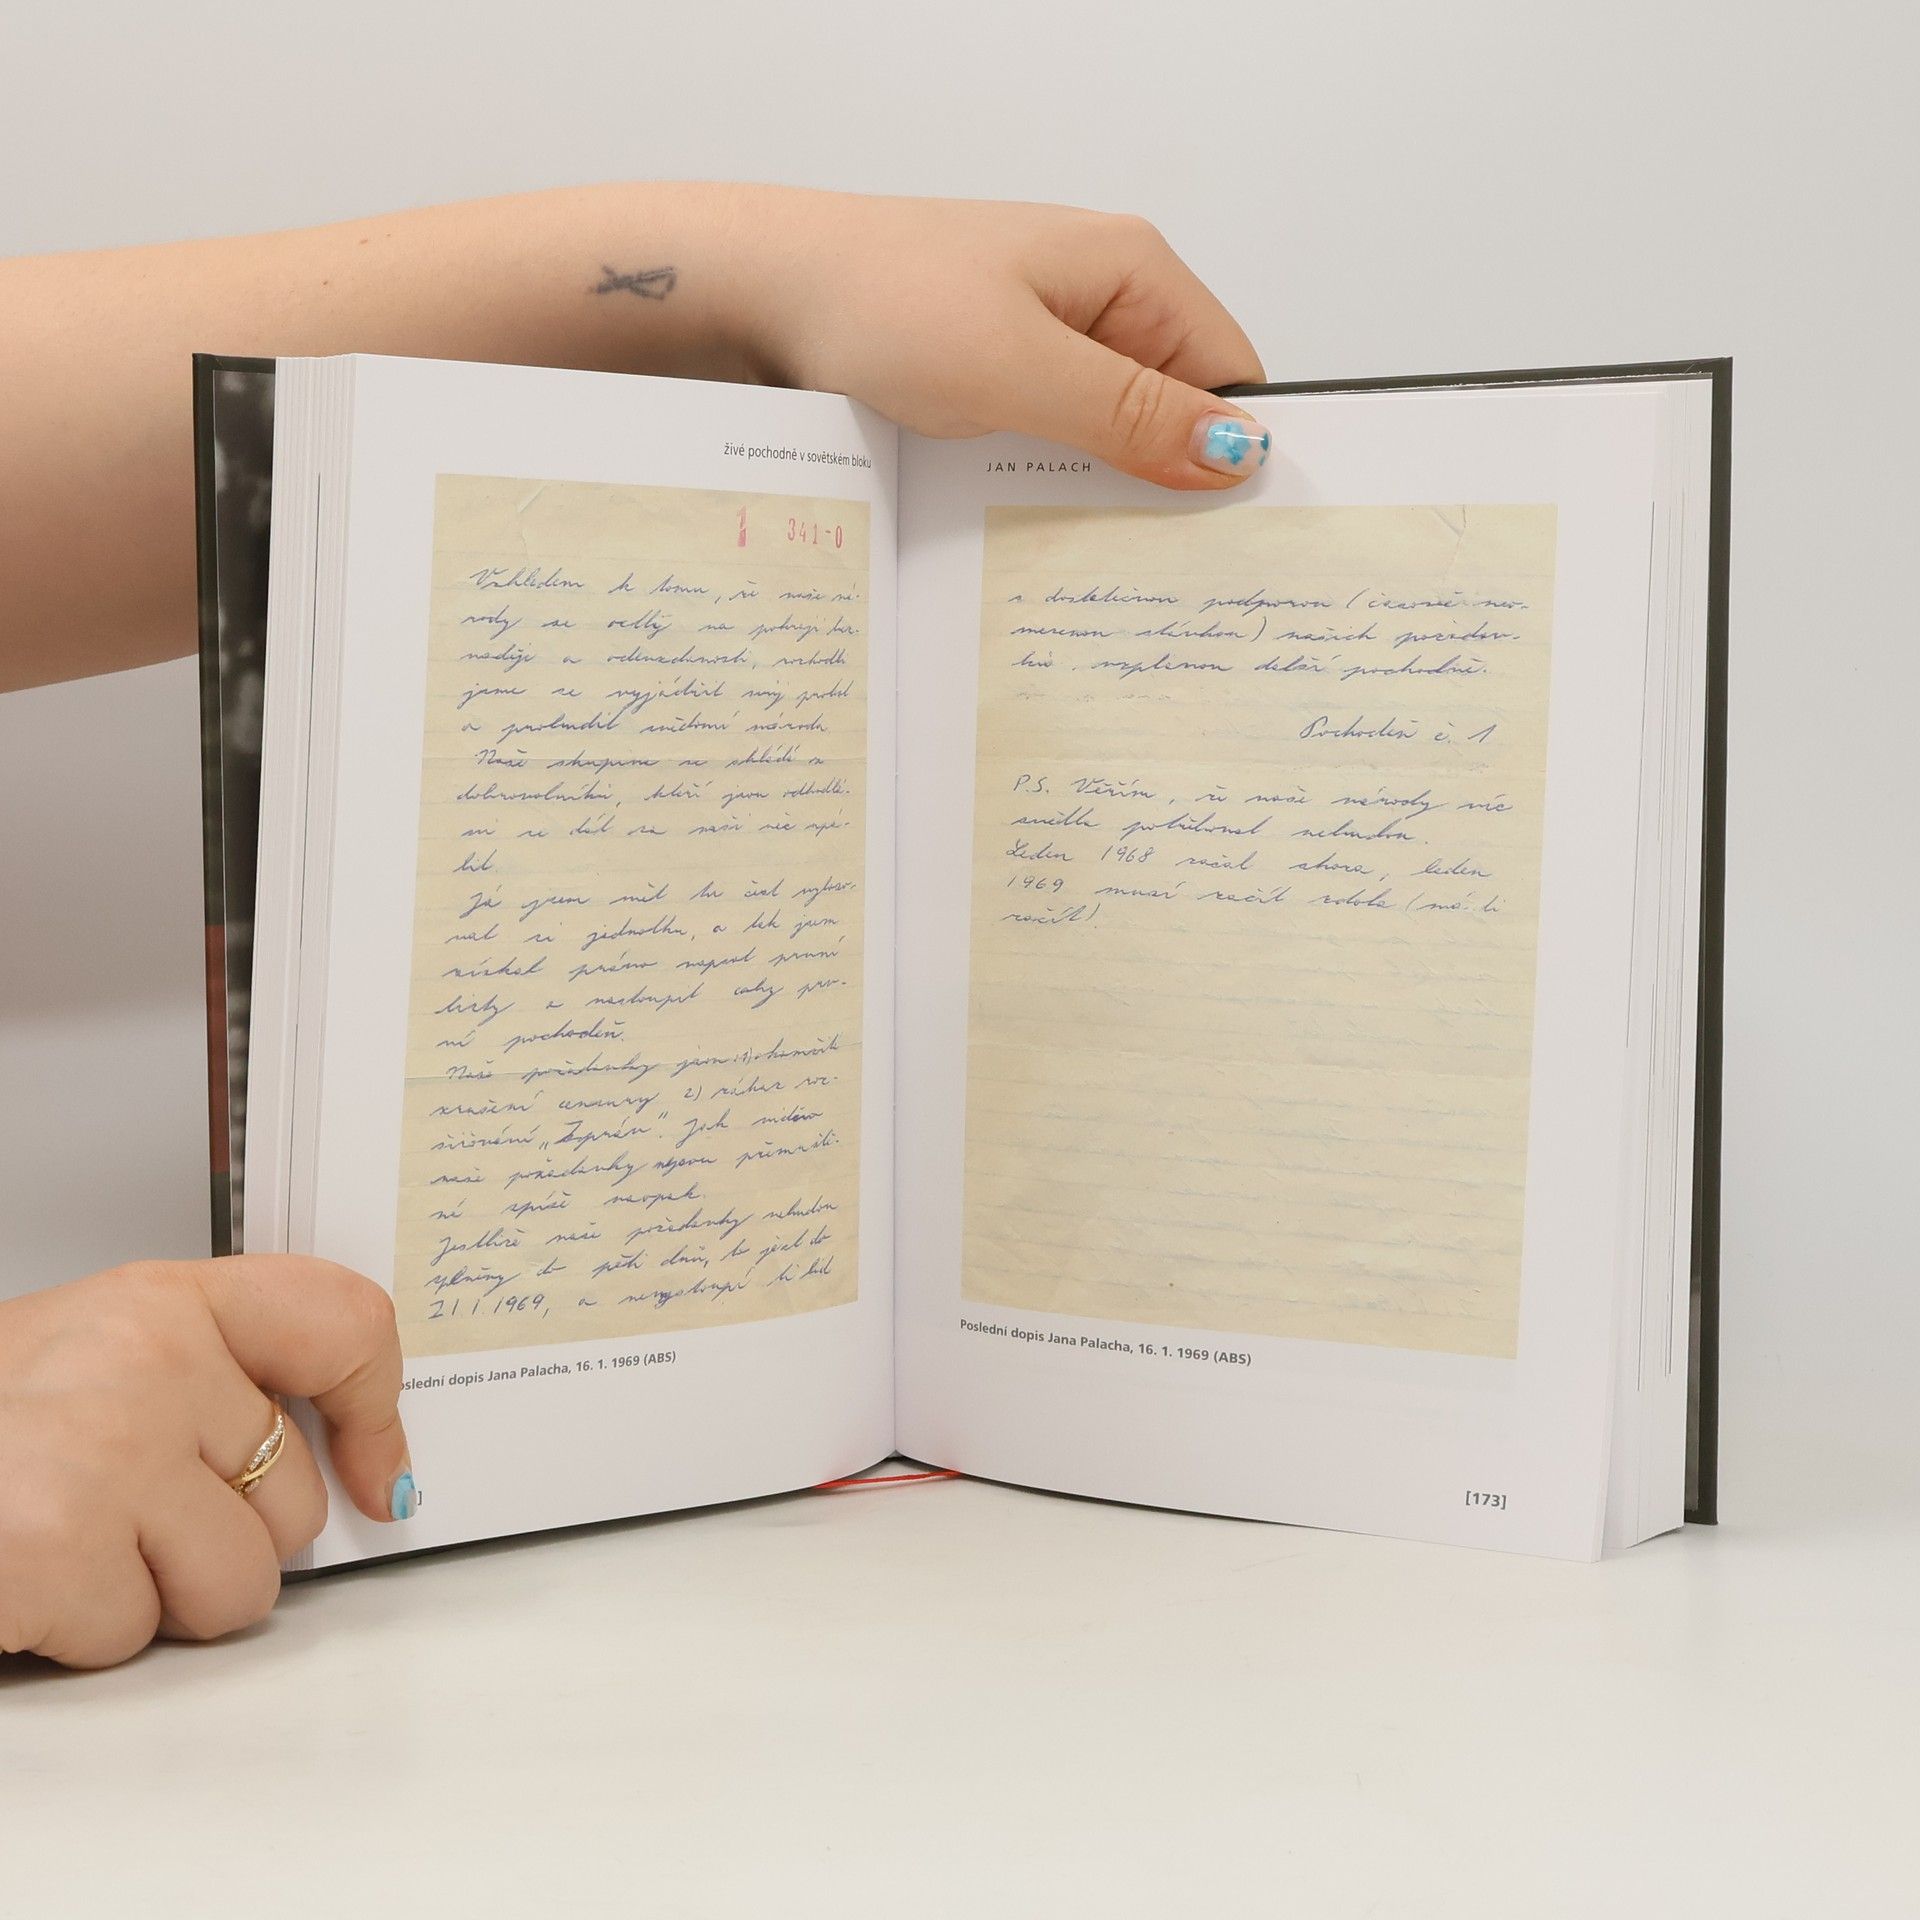 živé pochodně v sovětském bloku
1 341-0
Vzhledem k tomu, že naše ná-
rody se octly na pokraji bez-
naděje a odevzdanosti, rozhodli
jsme se vyjádřit svůj protest
a probudit svědomí národa
Naše skupina se skládá z
dobrovolníků, kteří jsou odhodlá-
ni se dát za naši věc upá-
lit.
Já jsem měl tu čest vyloso-
vat si jednotku, a tak jsem
získal právo napsat první
listy a nastoupit coby prv-
ní pochodeň.
Naše požadavky jsou 1) okamžité
zrušení cenzury 2) zákaz roz-
šiřování „Zpráv". Jak vidíte
naše požadavky nejsou přemrště-
né spíše naopak.
Jestliže naše požadavky nebudou
splněny do pěti dnů, to jest do
21.1.1969, a nevystoupí li lid
oslední dopis Jana Palacha, 16. 1. 1969 (ABS)
]
JAN PALACH
s dostatečnou podporou (časově neo-
mezenou stávkou) našich požadav-
ků, vzplanou další pochodně.
Pochodeň č. 1
P.S. Věřím, že naše národy víc
světla potřebovat nebudou.
Leden 1968 začal shora, leden
1969 musí začít zdola (má-li
začít).
Poslední dopis Jana Palacha, 16. 1. 1969 (ABS)
[173]